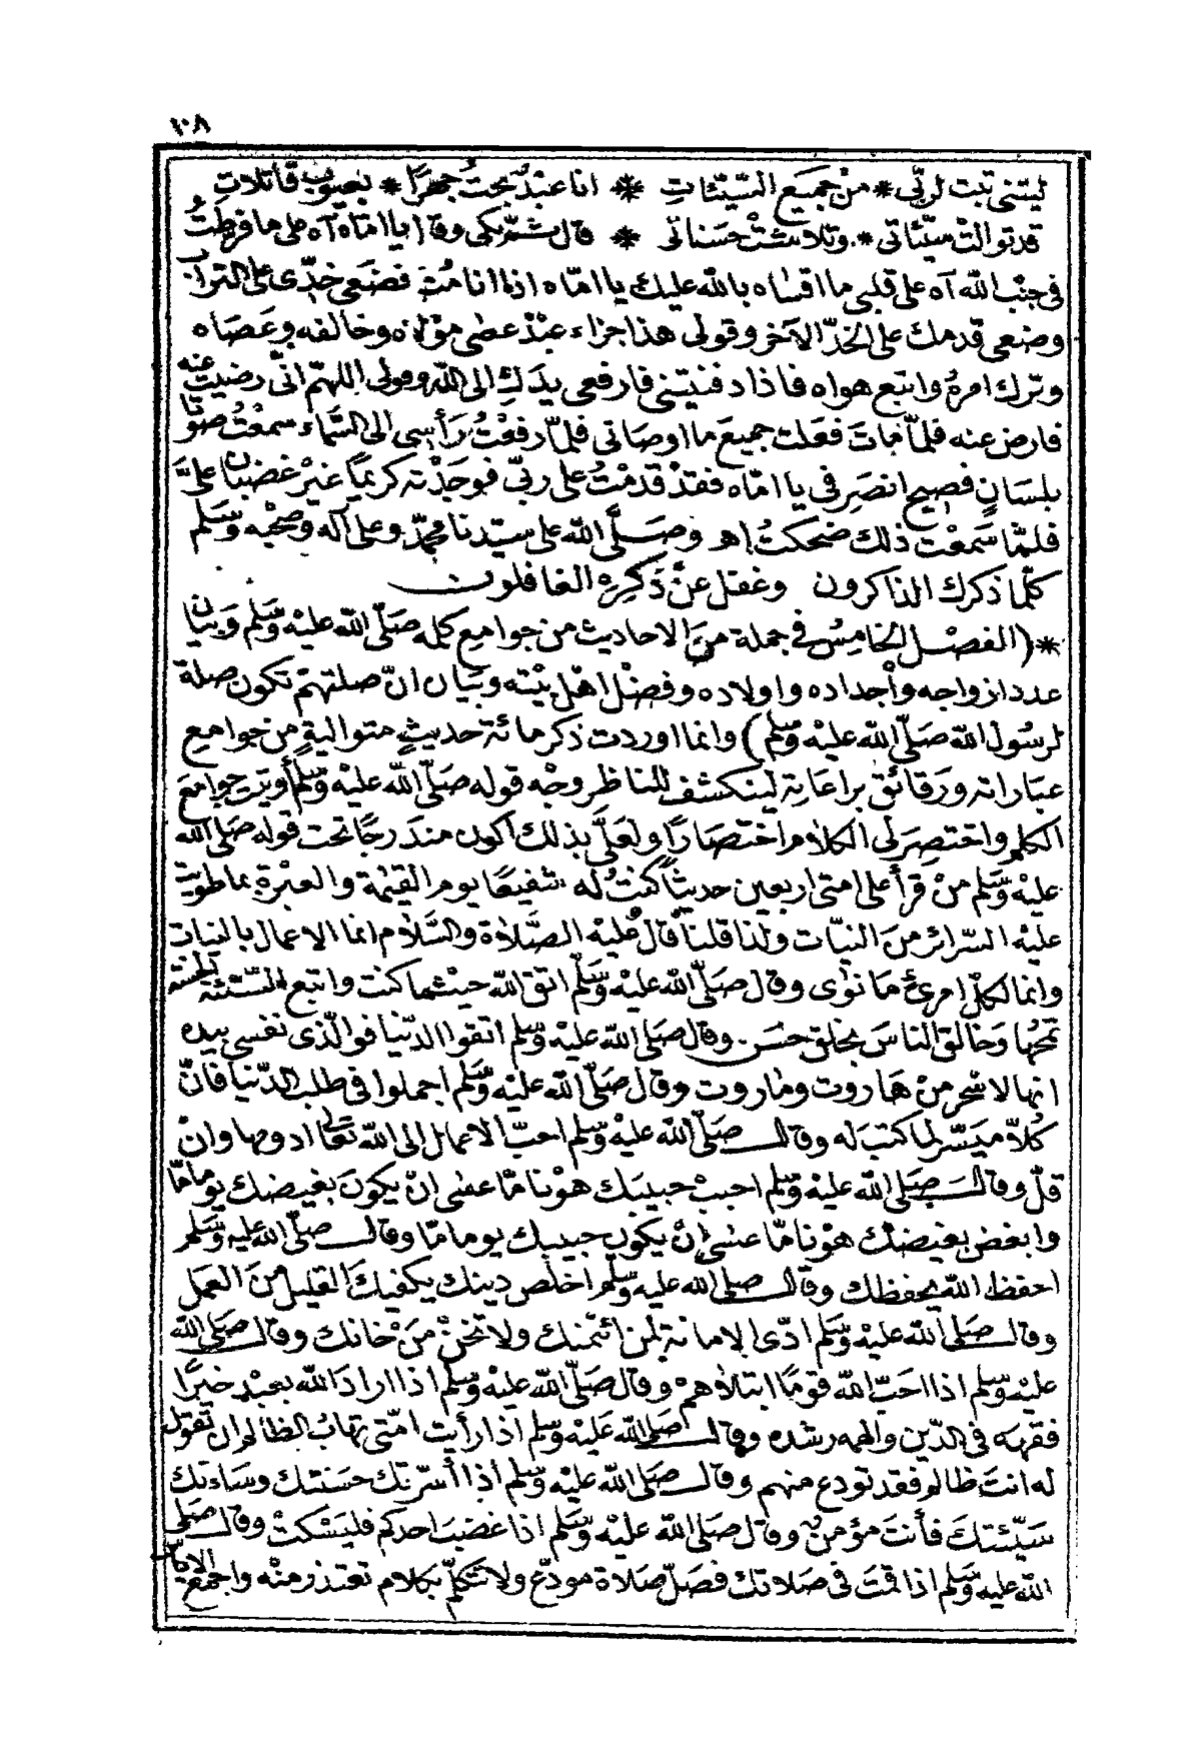 ١٠٨
ليتنى تبت لربّى * منْ جميع السّيّئات * انا عبْدٌ بحتُ جهرًا * بعيوب قاتلاتِ
قد توالتْ سيّئاتى * وتلاشتْ حَسناتى * قال ثمّ بكى وقال يا امّاه آه على ما فرطتُ
فى جنْب اللّه آه على قلبى ما اقساه باللّه عليك يا امّاه اذا انا متّ فضَعى خدّى على التراب
وضعى قدمك على الخدّ الآخر وقولى هذا جزاء عبْدٌ عصٰى موْلاه وخالفه وعَصَاه
وترك امرهُ واتبع هواه فاذا دفنيتنى فارفعى يدَكِ الى اللّه وقولى اللهمّ انّى رضيت عنه
فارض عنه فلمّا مات فعَلت جميعَ ما اوصانى فلمّا رفعْتُ رَأسى الى السَّماء سمعْتُ صوْتًا
بلسَانٍ فصيح انصَرِفى يا امّاه فقدْ قدمْتُ على ربّى فوجَدْته كريمًا غيْر غضبَان علىَّ
فلمّا سَمعْت ذلك ضحكتُ اهـ وَصَلَّى اللّه على سيّدنا محمّد وعلى آله وصحْبه وسَلم
كلّما ذكرك الذاكرون وغفل عنْ ذكرِهِ الغافلون
* (الفصْل الخامِسُ فى جملة منَ الاحاديث من جوامع كلمه صَلّى اللّه عليْه وسَلم وَبيان
عدد ازواجه وأجداده واولاده وفضْل اهْل بيْته وبيَان انّ صلتهمْ تكون صلة
لرسُول اللّه صَلّى اللّه عليْه وَسّلم) وانما اوردت ذكر مائة حديثٍ متواليةٍ من جوامع
عبَاراته وَرقائق براعَاتِه لينكشف للناظر وجْه قوله صَلّى اللّه عليْه وَسّلم أُوتيت جوامعَ
الكلم واختصِرَ لى الكلام اختصَارًا ولعَلى بذلك اكون مندَرجًا تحت قوله صَلى اللّه
عليْه وَسَّلم منْ قرأ على امتى اربعين حديثاً كنتُ له شفيعًا يوم القيٰمة والعبْرة بما طويَت
عليْه السّرائر منَ النيّات ولذا قلنا قال عليْه الصَّلاة والسَّلام انما الاعمال بالنيات
وانما لكلّ امرئ مَا نوٰى وقال صَلّى اللّه عليْه وَسَلّم اتق اللّه حيْثما كنت واتبع السّيّئة الحسنة
تمحُها وَخالق الناسَ بخلق حسَن وقال صَلى اللّه عليْه وَسّلم اتقوا الدّنيا فو الّذى نفسى بيده
انها لاسْحر منْ هَاروت ومٰاروت وقال صَلّى اللّه عليْه وَسّلم اجملوا فى طلب الدّنيا فانّ
كُلاّ ميسّر لما كتبَ له وقال صَلّى اللّه عليْه وَسّلم احبّ الاعمال الى اللّه تعالى ادومها وانْ
قلّ وقال صَلى اللّه عليْه وَسّلم احببْ حبيبَك هوْنا مّا عسٰى انْ يكونَ بغيضك يومًا مّا
وابغض بغيضكْ هوْنا مّا عسٰى انْ يكون حبيبك يوما مّا وقال صَلّى اللّه عليه وَسَلم
احفظ اللّه يحفظك وقال صَلى اللّه عليْه وَسّلم اخلص دينك يكفيكَ القليل منَ العمَل
وقال صَلى اللّه عليْه وسَلم ادّى الامانة لمن ائتمنك ولا تخنْ مَنْ خانك وقال صَلى اللّه
عليْه وَسّلم اذا احَبّ اللّه قومًا ابتلاهمْ وقال صَلّى اللّه عليْه وَسّلم اذا ارادَ اللّه بعبْدٍ خيْرًا
فقهَه فى الدّين والهمه رشده وقال صَلى اللّه عَليْه وَسّلم اذا رأيت امّتى تهابُ الظالم ان تقول
له انتَ ظالم فقد تودع منهم وقال صَلى اللّه عليْه وَسّلم اذا أسَرّتك حَسَنتك وسَاءتك
سَيّئتكَ فأنتَ مؤمنٌ وقال صَلى اللّه عليْه وَسَّلم اذا غضبَ احدكم فليَسْكتْ وقال صَلى
اللّه عليْه وَسّلم اذا قمْتَ فى صَلاتك فصَلّ صَلاة مودّع ولا تتكلّم بكلام تعتذر منْه واجْمع الاياس